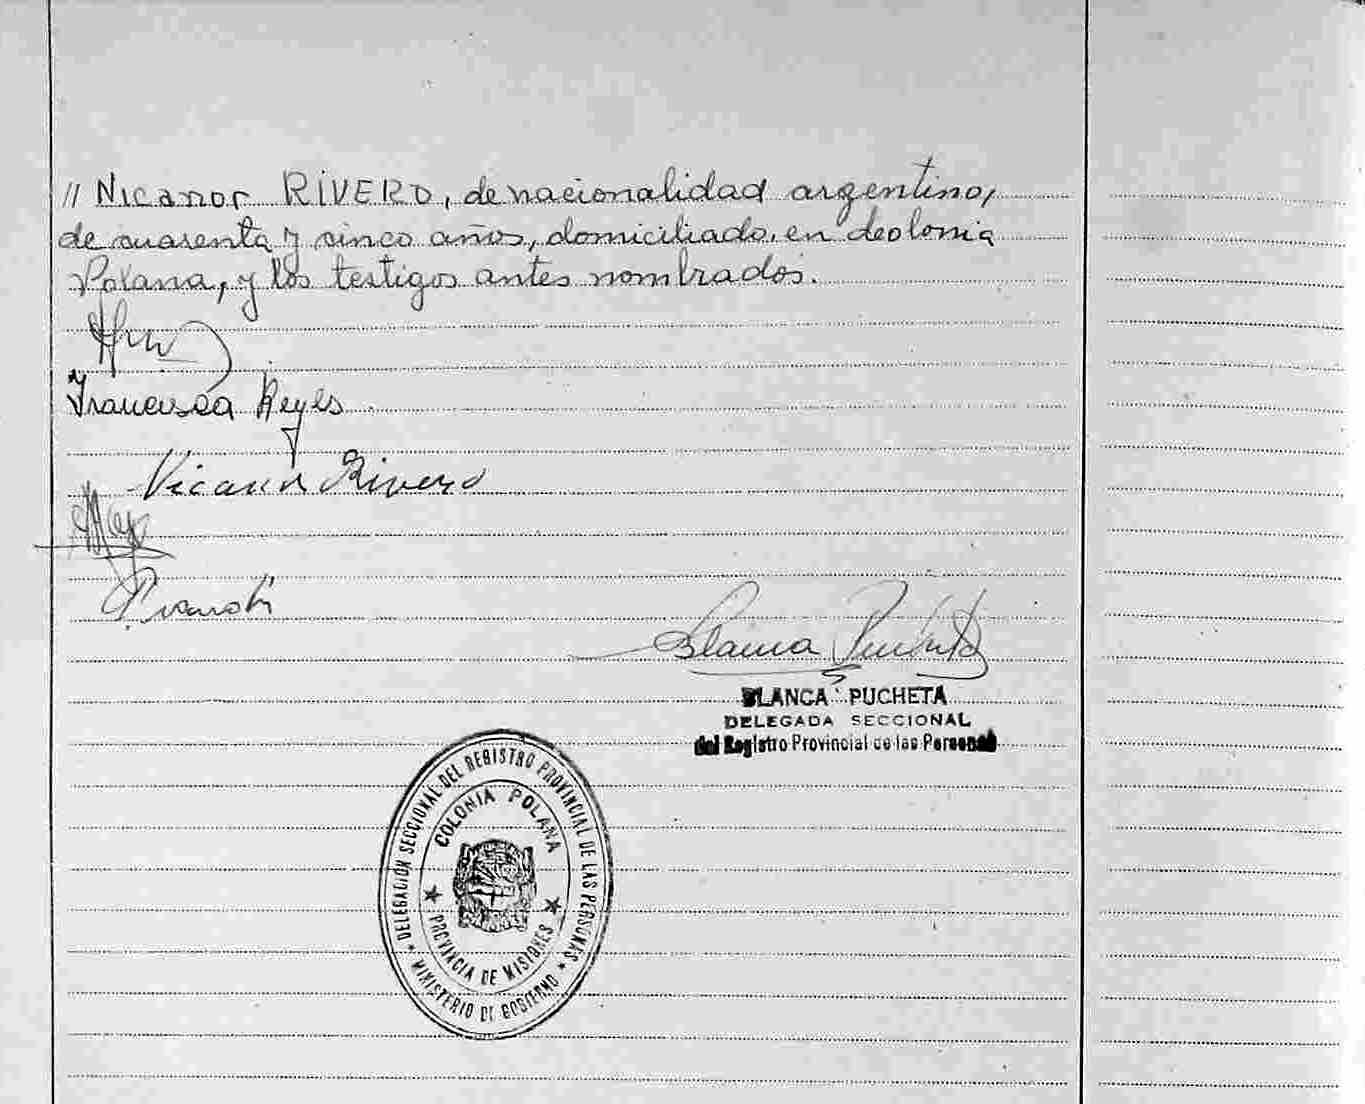 // Nicanor RIVERO, de nacionalidad argentino,
de cuarenta y cinco años, domiciliado en Colonia
Polana, y los testigos antes nombrados.
Francisca Reyes
Nicanor Rivero
Blanca Pucheta
BLANCA PUCHETA
DELEGADA SECCIONAL
del Registro Provincial de las Personas
DELEGACION SECCIONAL DEL REGISTRO PROVINCIAL DE LAS PERSONAS
COLONIA POLANA
★ PROVINCIA DE MISIONES ★
★ MINISTERIO DE GOBIERNO ★